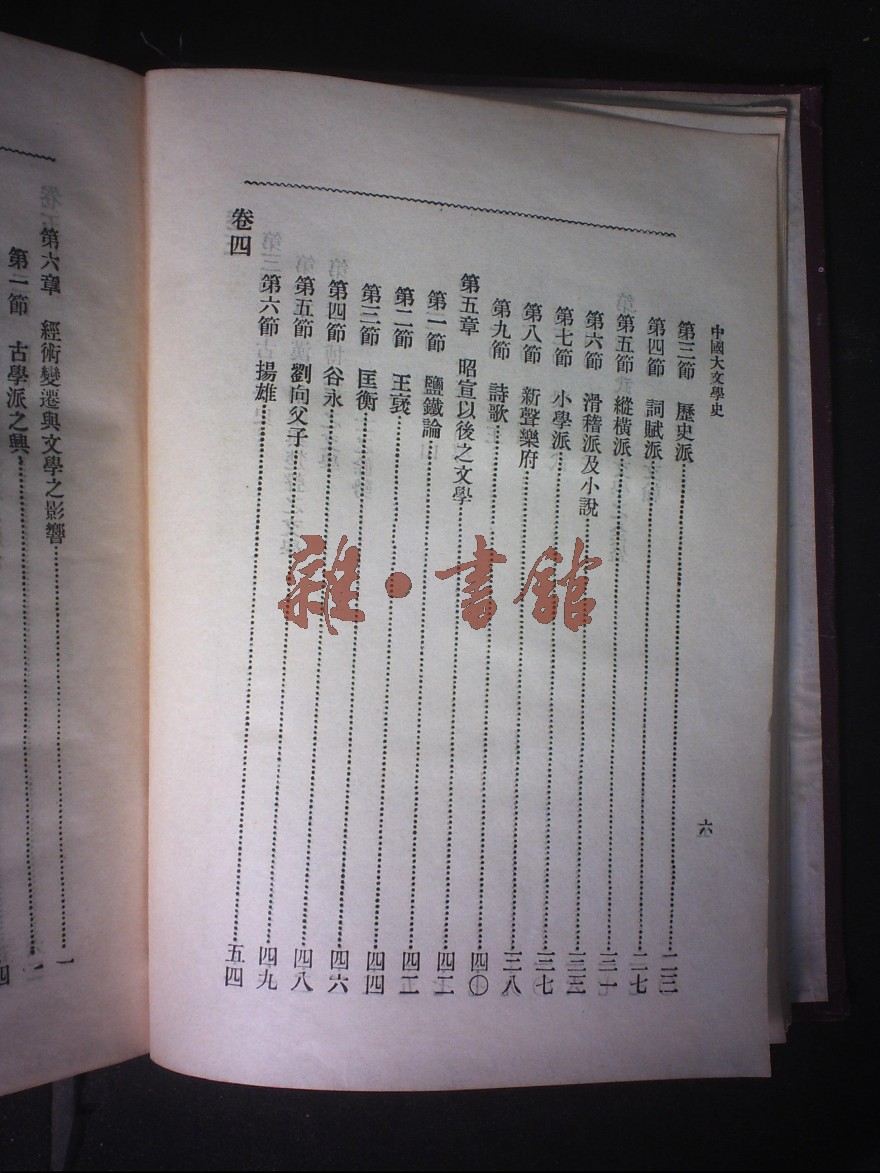 中國大文學史
六
第三節 歷史派 二三
第四節 詞賦派 二七
第五節 縱橫派 三一
第六節 滑稽派及小說 三三
第七節 小學派 三七
第八節 新聲樂府 三八
第九節 詩歌 四〇
第五章 昭宣以後之文學 四二
第一節 鹽鐵論 四二
第二節 王褒 四四
第三節 匡衡 四六
第四節 谷永 四八
第五節 劉向父子 四九
第六節 揚雄 五四
卷四
第六章 經術變遷與文學之影響 一
第一節 古學派之興 一
四
雜·書館